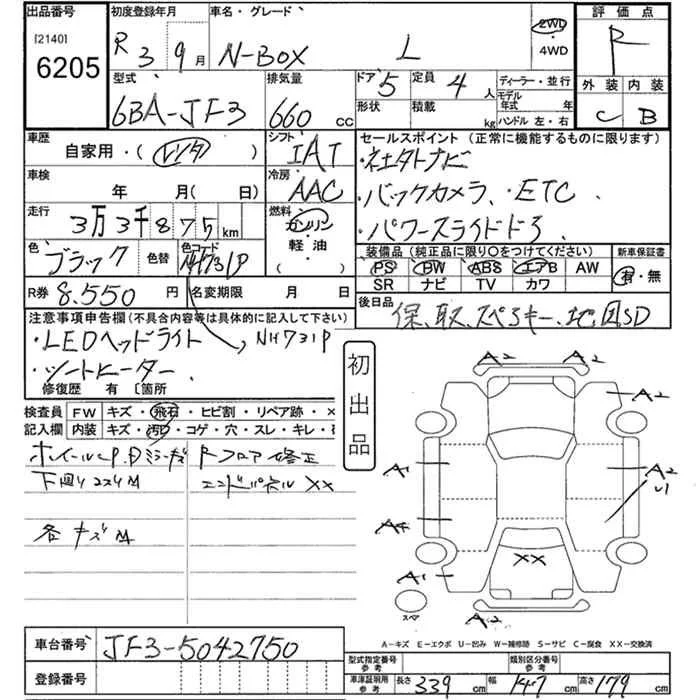 出品番号 初度登録年月 車名・グレード 評価点
[2140] 6205 R 3 9月 N-BOX L 2WD・4WD R
型式 排気量 ドア 5 定員 4人 ディーラー・並行 外装 内装
6BA-JF3 660 cc 形状 積載 kg モデル年式 年 C B
ハンドル 左・右
車歴 シフト セールスポイント (正常に機能するものに限ります)
自家用・(レンタ) IAT ・社外ナビ
車検 年 月(日) 冷房 AAC ・バックカメラ、・ETC、
走行 3万3千875km 燃料 ガソリン・軽油・( ) ・パワースライドドア
色 ブラック 色替 色コード NH731P 装備品 (純正品に限り○をつけてください) 新車保証書
PS BW ABS エアB AW 有・無
SR ナビ TV カワ
R券 8.550円 名変期限 月 日 後日品 保、取、スペアキー、地図SD
注意事項申告欄 (不具合内容等は具体的に記入して下さい)
・LEDヘッドライト NH731P
・シートヒーター
修復歴 有 〔箇所 初出品
検査員記入欄 FW キズ・飛石・ヒビ割・リペア跡・×
内装 キズ・汚れ・コゲ・穴・スレ・キレ・
ホイールCP. Dミラーキズ Rフロア修正
下廻りコスリM エンドパネルXX
各キズM
A2 A2
A2
A1 A2 U1
A4
XX
A1
A2
スペア
A-キズ E-エクボ U-凹み W-補修跡 S-サビ C-腐食 XX-交換済
車台番号 JF3-5042750
登録番号
型式指定番号 参考 類別区分番号 参考
車庫証明用 参考 長さ 339cm 幅 147cm 高さ 179cm